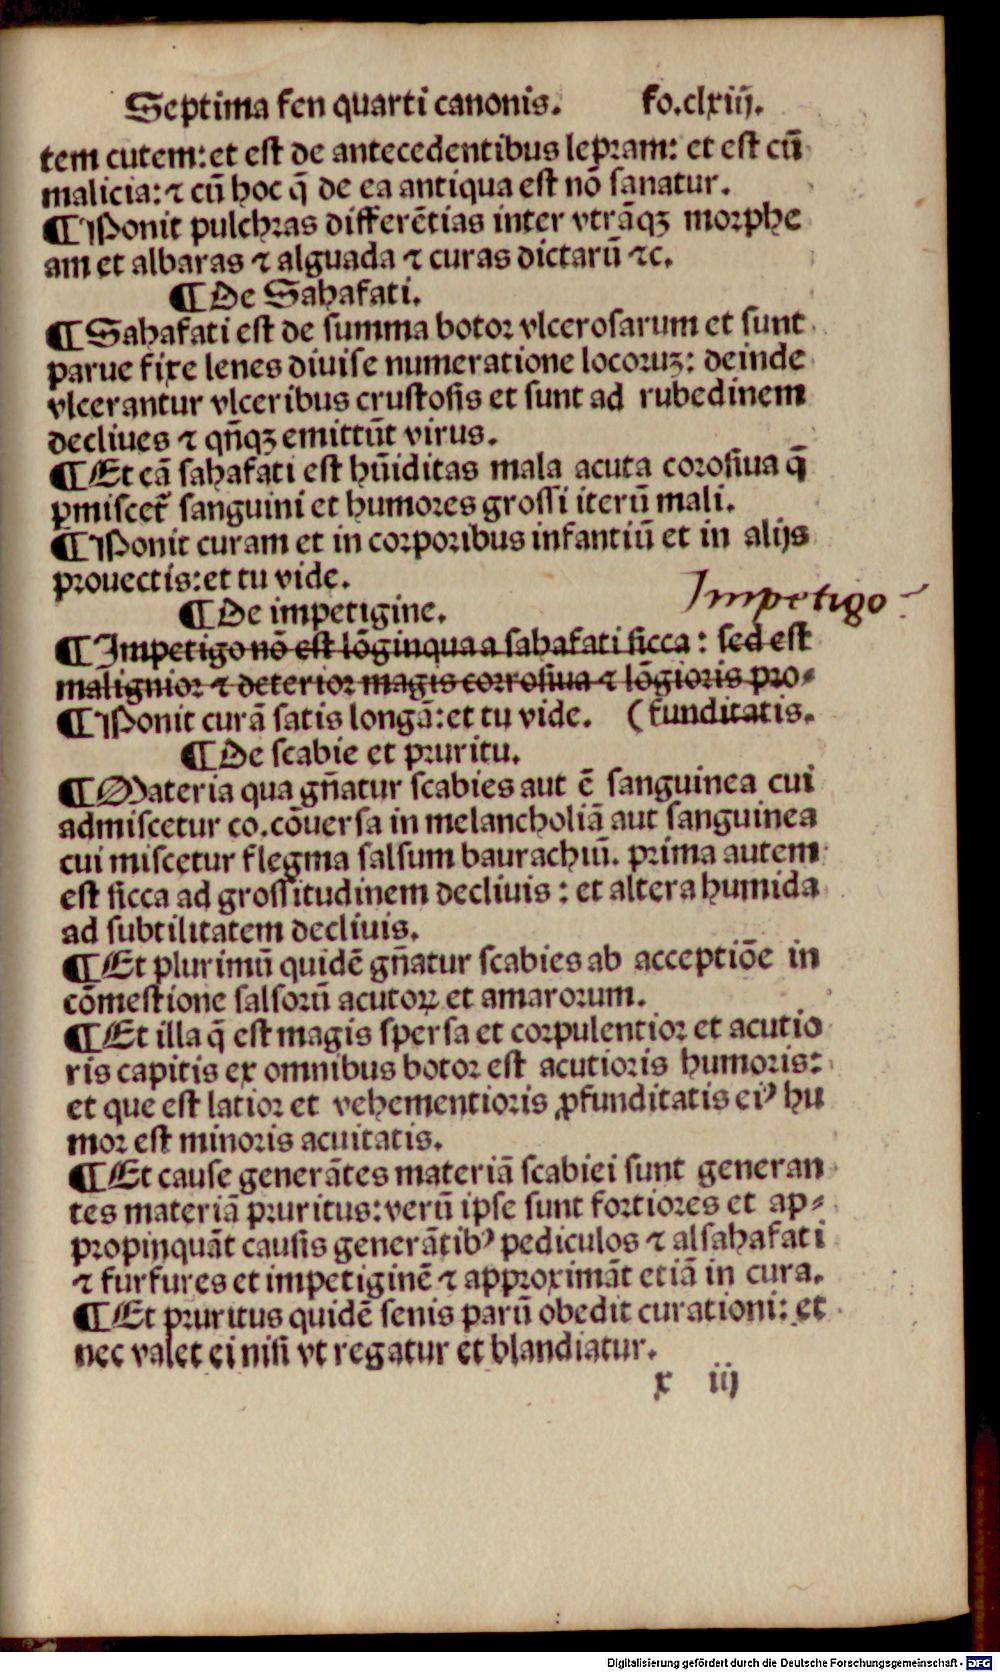 Septima fen quarti canonis. fo.clxiij.
tem cutem: et est de antecedentibus lepram: et est cū
malicia: ⁊ cū hoc q̄ de ea antiqua est nō sanatur.
¶ Ponit pulchras differētias inter vtrāqꝫ morphe
am et albaras ⁊ alguada ⁊ curas dictarū ⁊c.
¶ De Sahafati.
¶ Sahafati est de summa botor vlcerosarum et sunt
parue fixe lenes diuise numeratione locoruꝫ: deinde
vlcerantur vlceribus crustosis et sunt ad rubedinem
decliues ⁊ qn̄qꝫ emittūt virus.
¶ Et cā sahafati est hūiditas mala acuta corosiua q̄
ꝑmiscet̄ sanguini et humores grossi iterū mali.
¶ Ponit curam et in corporibus infantiū et in alijs
prouectis: et tu vide.
Impetigo
¶ De impetigine.
¶ Impetigo nō est lōginqua a sahafati sicca: sed est
malignior ⁊ deterior magis corrosiua ⁊ lōgioris pro⸗
¶ Ponit curā satis longā: et tu vide. (funditatis.
¶ De scabie et pruritu.
¶ Materia qua gn̄atur scabies aut ē sanguinea cui
admiscetur co. cōuersa in melancholiā aut sanguinea
cui miscetur flegma salsum baurachiū. prima autem
est sicca ad grossitudinem decliuis: et altera humida
ad subtilitatem decliuis.
¶ Et plurimū quidē gn̄atur scabies ab acceptiōe in
cōmestione salsorū acutoꝝ et amarorum.
¶ Et illa q̄ est magis spersa et corpulentior et acutio
ris capitis ex omnibus botor est acutioris humoris:
et que est latior et vehementioris ꝓfunditatis eiꝰ hu
mor est minoris acuitatis.
¶ Et cause generātes materiā scabiei sunt generan
tes materiā pruritus: verū ipse sunt fortiores et ap⸗
propinquāt causis generātibꝰ pediculos ⁊ alsahafati
⁊ furfures et impetiginē ⁊ approximāt etiā in cura.
¶ Et pruritus quidē senis parū obedit curationi: et
nec valet ei nisi vt regatur et blandiatur.
x iij
Digitalisierung gefördert durch die Deutsche Forschungsgemeinschaft - DFG